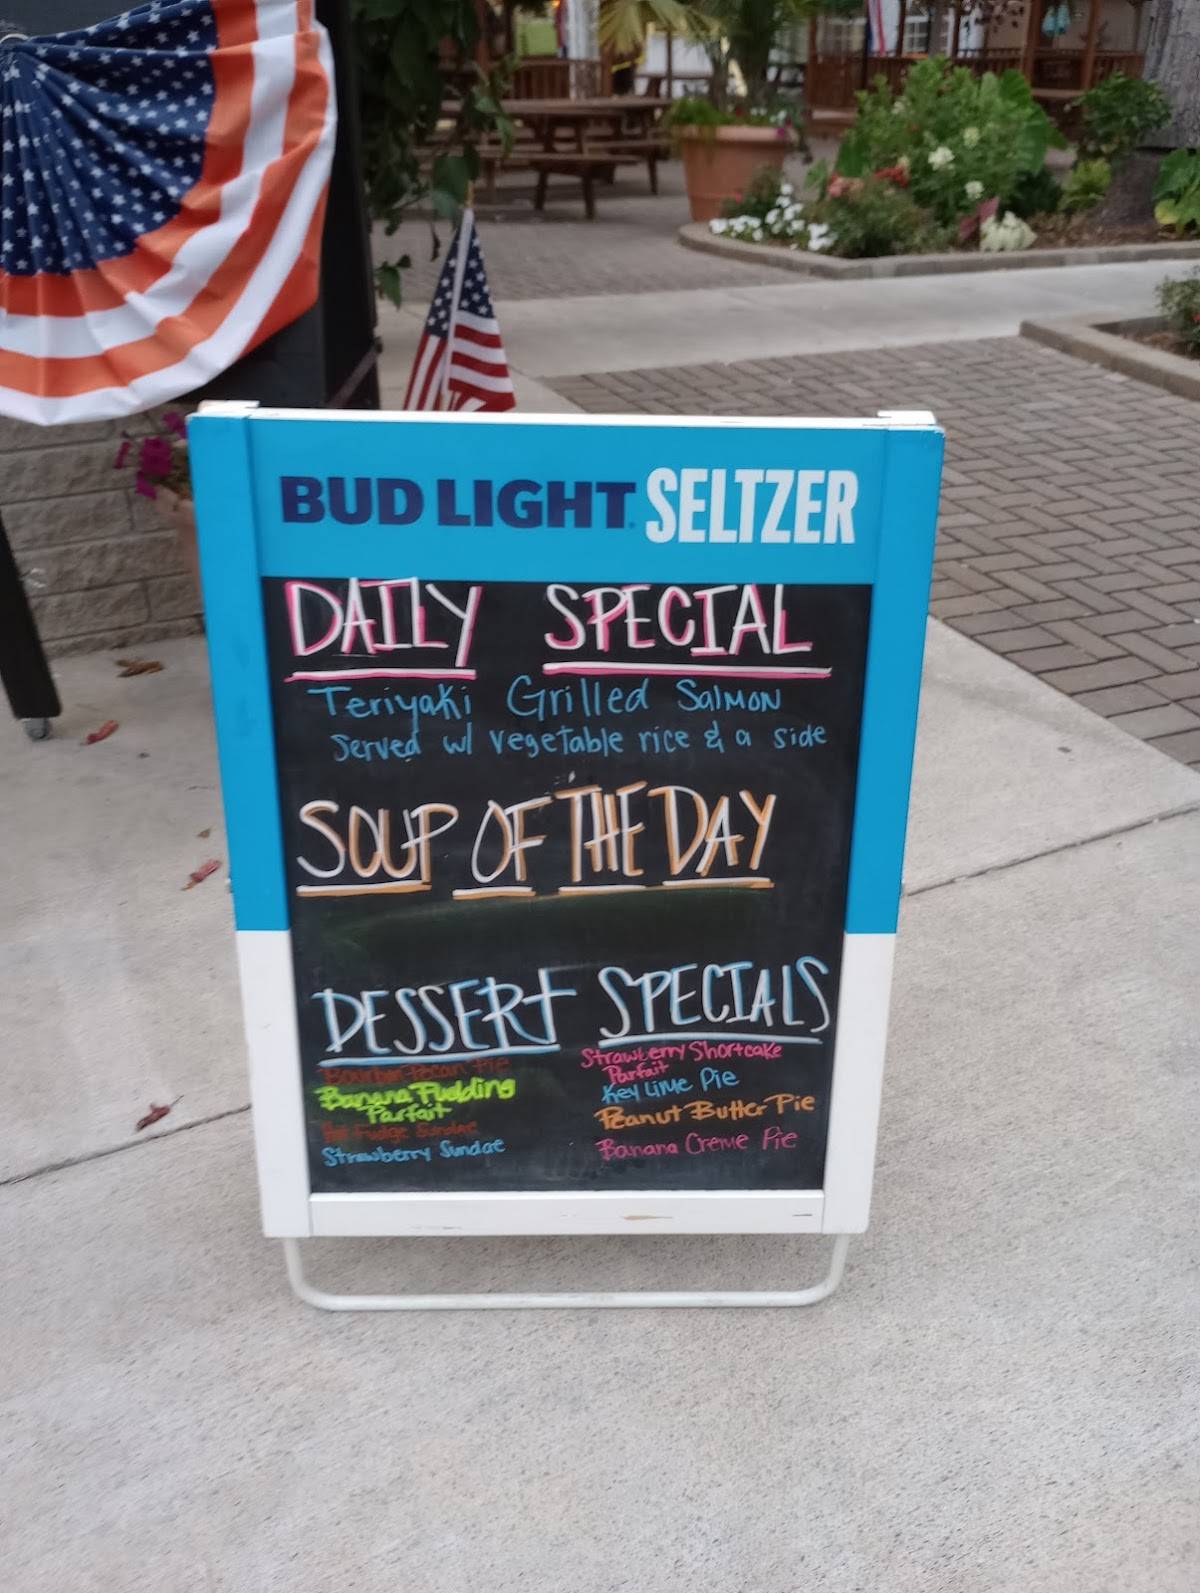 BUD LIGHT SELTZER
DAILY SPECIAL
Teriyaki Grilled Salmon
Served w/ vegetable rice & a side
SOUP OF THE DAY
DESSERT SPECIALS
Bourbon Pecan Pie
Banana Pudding
Parfait
Hot Fudge Sundae
Strawberry Sundae
Strawberry Shortcake
Parfait
Key Lime Pie
Peanut Butter Pie
Banana Creme Pie